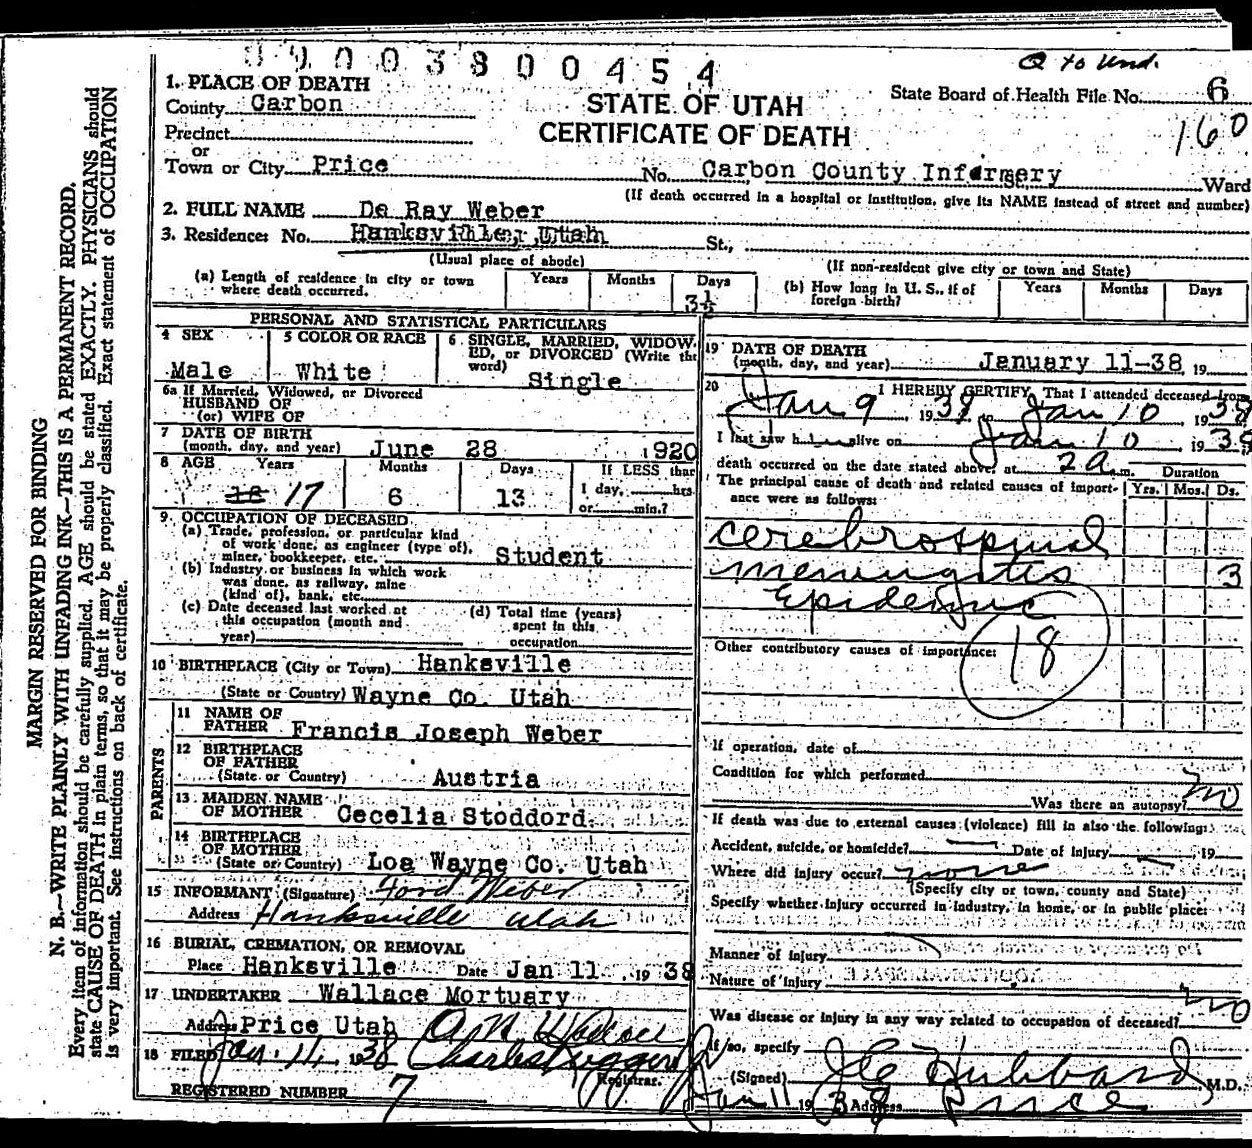 003800454
Q to Und.
State Board of Health File No. 6
160
STATE OF UTAH
CERTIFICATE OF DEATH
1. PLACE OF DEATH
County Carbon
Precinct
or
Town or City Price No. Carbon County Infirmary St. Ward
(If death occurred in a hospital or institution, give its NAME instead of street and number)
2. FULL NAME De Ray Weber
3. Residence: No. Hanksville, Utah St.,
(Usual place of abode) (If non-resident give city or town and State)
(a) Length of residence in city or town where death occurred. Years Months Days 3½
(b) How long in U. S., if of foreign birth? Years Months Days
PERSONAL AND STATISTICAL PARTICULARS
4 SEX Male
5 COLOR OR RACE White
6 SINGLE, MARRIED, WIDOW-
ED, or DIVORCED (Write the
word) Single
6a If Married, Widowed, or Divorced
HUSBAND OF
(or) WIFE OF
7 DATE OF BIRTH
(month, day, and year) June 28 1920
8 AGE Years Months Days If LESS than
18 17 6 13 1 day, hrs
or min.?
9. OCCUPATION OF DECEASED
(a) Trade, profession, or particular kind
of work done, as engineer (type of),
miner, bookkeeper, etc. Student
(b) Industry or business in which work
was done, as railway, mine
(kind of), bank, etc.
(c) Date deceased last worked at
this occupation (month and
year)
(d) Total time (years)
spent in this
occupation
10 BIRTHPLACE (City or Town) Hanksville
(State or Country) Wayne Co. Utah
PARENTS
11 NAME OF
FATHER Francis Joseph Weber
12 BIRTHPLACE
OF FATHER
(State or Country) Austria
13 MAIDEN NAME
OF MOTHER Cecelia Stoddord
14 BIRTHPLACE
OF MOTHER
(State or Country) Loa Wayne Co. Utah
15 INFORMANT (Signature) Ford Weber
Address Hanksville Utah
16 BURIAL, CREMATION, OR REMOVAL
Place Hanksville Date Jan 11 1938
17 UNDERTAKER Wallace Mortuary
Address Price Utah
18 FILED Jan. 14, 1938
Registrar.
REGISTERED NUMBER 7
19 DATE OF DEATH
(month, day, and year) January 11-38 19
20 I HEREBY CERTIFY, That I attended deceased from
Jan 9, 1938 to Jan 10 1938
I last saw him alive on Jan 10 1938
death occurred on the date stated above, at 2 a m. Duration
The principal cause of death and related causes of import-
ance were as follows: Yrs. Mos. Ds.
cerebrospinal
meningitis 3
Epidemic
18
Other contributory causes of importance:
If operation, date of
Condition for which performed
Was there an autopsy? no
If death was due to external causes (violence) fill in also the following:
Accident, suicide, or homicide? — Date of injury —, 19
Where did injury occur? none
(Specify city or town, county and State)
Specify whether injury occurred in industry, in home, or in public place:
Manner of injury
Nature of injury
Was disease or injury in any way related to occupation of deceased? no
If so, specify
(Signed) Hubbard, M.D.
Jan 11 1938 Address Price
MARGIN RESERVED FOR BINDING
N. B.—WRITE PLAINLY WITH UNFADING INK—THIS IS A PERMANENT RECORD.
Every item of information should be carefully supplied. AGE should be stated EXACTLY. PHYSICIANS should
state CAUSE OF DEATH in plain terms, so that it may be properly classified. Exact statement of OCCUPATION
is very important. See instructions on back of certificate.